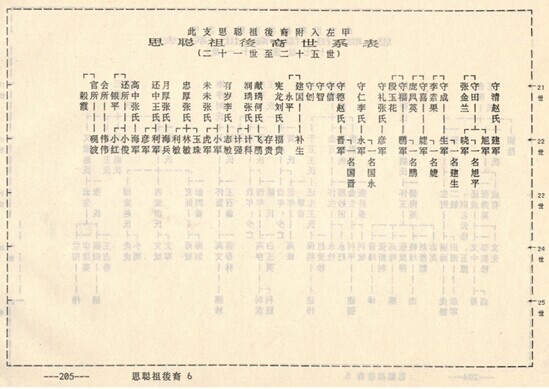 此支思聪祖後裔附入左甲
思聪祖後裔世系表
(二十一世至二十五世)
21世
22世
23世
24世
25世
守清赵氏 建军
守田 旭军 一名旭平
张金兰 晓军
守成 生军 一名建生
李素果
守喜 军 一名婕
庞凤英
守福 鹏军 一名鹏
段玉花
守礼张氏 彦军
守仁李氏 永军 一名国永
守德赵氏 晋军 一名国晋
守信
守智
守创
建国 补生
永平
宪龙刘氏 福贵
存贵
献琦何氏 飞鹏
计科
计强
有岁李氏 志敏
小军
未未张氏 虎军
林敏
忠厚张氏 利敏
月厚张氏 海军
利军
还中王氏 彦军
高中张氏 海俊
还所 小俊
银平 小红
会所 伟伟
官所
毅霞
---205---
思聪祖後裔 6